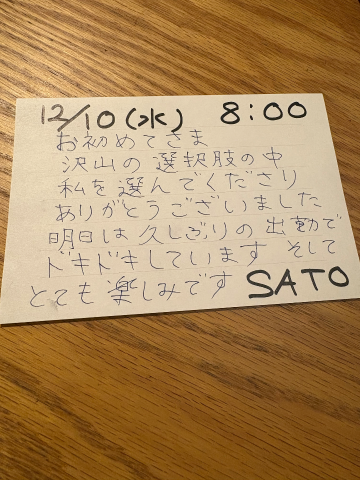 12/10(水) 8:00
お初めてさま
沢山の選択肢の中
私を選んでくださり
ありがとうございました
明日は久しぶりの出勤で
ドキドキしています そして
とても楽しみです SATO